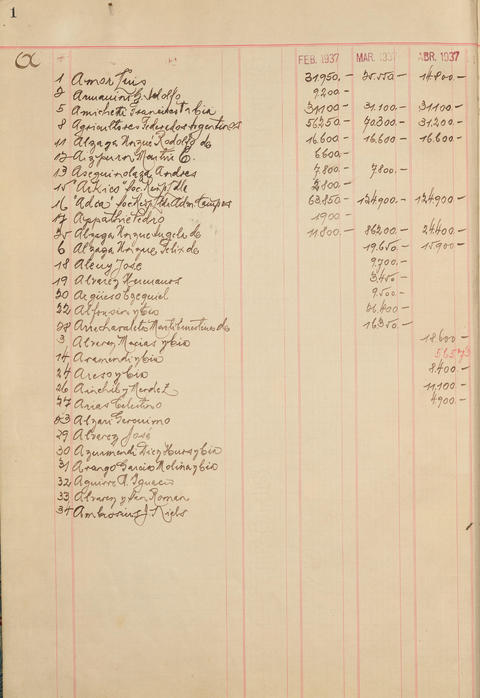 1
a
FEB. 1937 MAR. 1937 ABR. 1937
1 Amor Luis 31.950.- 14.800.-
2 Armanini G. Adolfo 9.200.-
5 Amichetti Francisco y Cia 31.100.- 31.100.- 31.100.-
8 Agricultores Federados Argentinos 56.250.- 70.300.- 31.200.-
11 Alzaga Unzue Rodolfo de 16.600.- 16.600.- 16.600.-
12 Martin C. 6.600.-
13 Aseguinolaza Andres 7.800.- 7.800.-
15 Soc. Resp. Ltda 2.800.-
16 "Adca" Soc. Resp. 63.850.- 124.900.- 124.900.-
17 Pedro 1.900.-
25 Alzaga Unzue Angela de 11.800.- 86.200.- 24.400.-
6 Alzaga Unzue Felix de 19.650.- 15.900.-
18 Jose 9.700.-
19 Alvarez Hermanos 3.450.-
20 Ezequiel 9.500.-
22 Alfonsin y Cia 26.400.-
28 Martiburturu de 16.350.-
3 Alvarez Macias y Cia 18.600.-
14 Aramendi y Cia 8.400.-
24 Areso y Cia
26 y Mendez 11.100.-
27 Arias Celestino 4.900.-
23 Alzari Geronimo
29 Alvarez José
30 Azurmendi Diez Hnos y Cia
31 Arango Garcia Molina y Cia
32 Aguirre A. Ignacio
33 Alvarez y San Roman
34 Ambrosius J. Niels